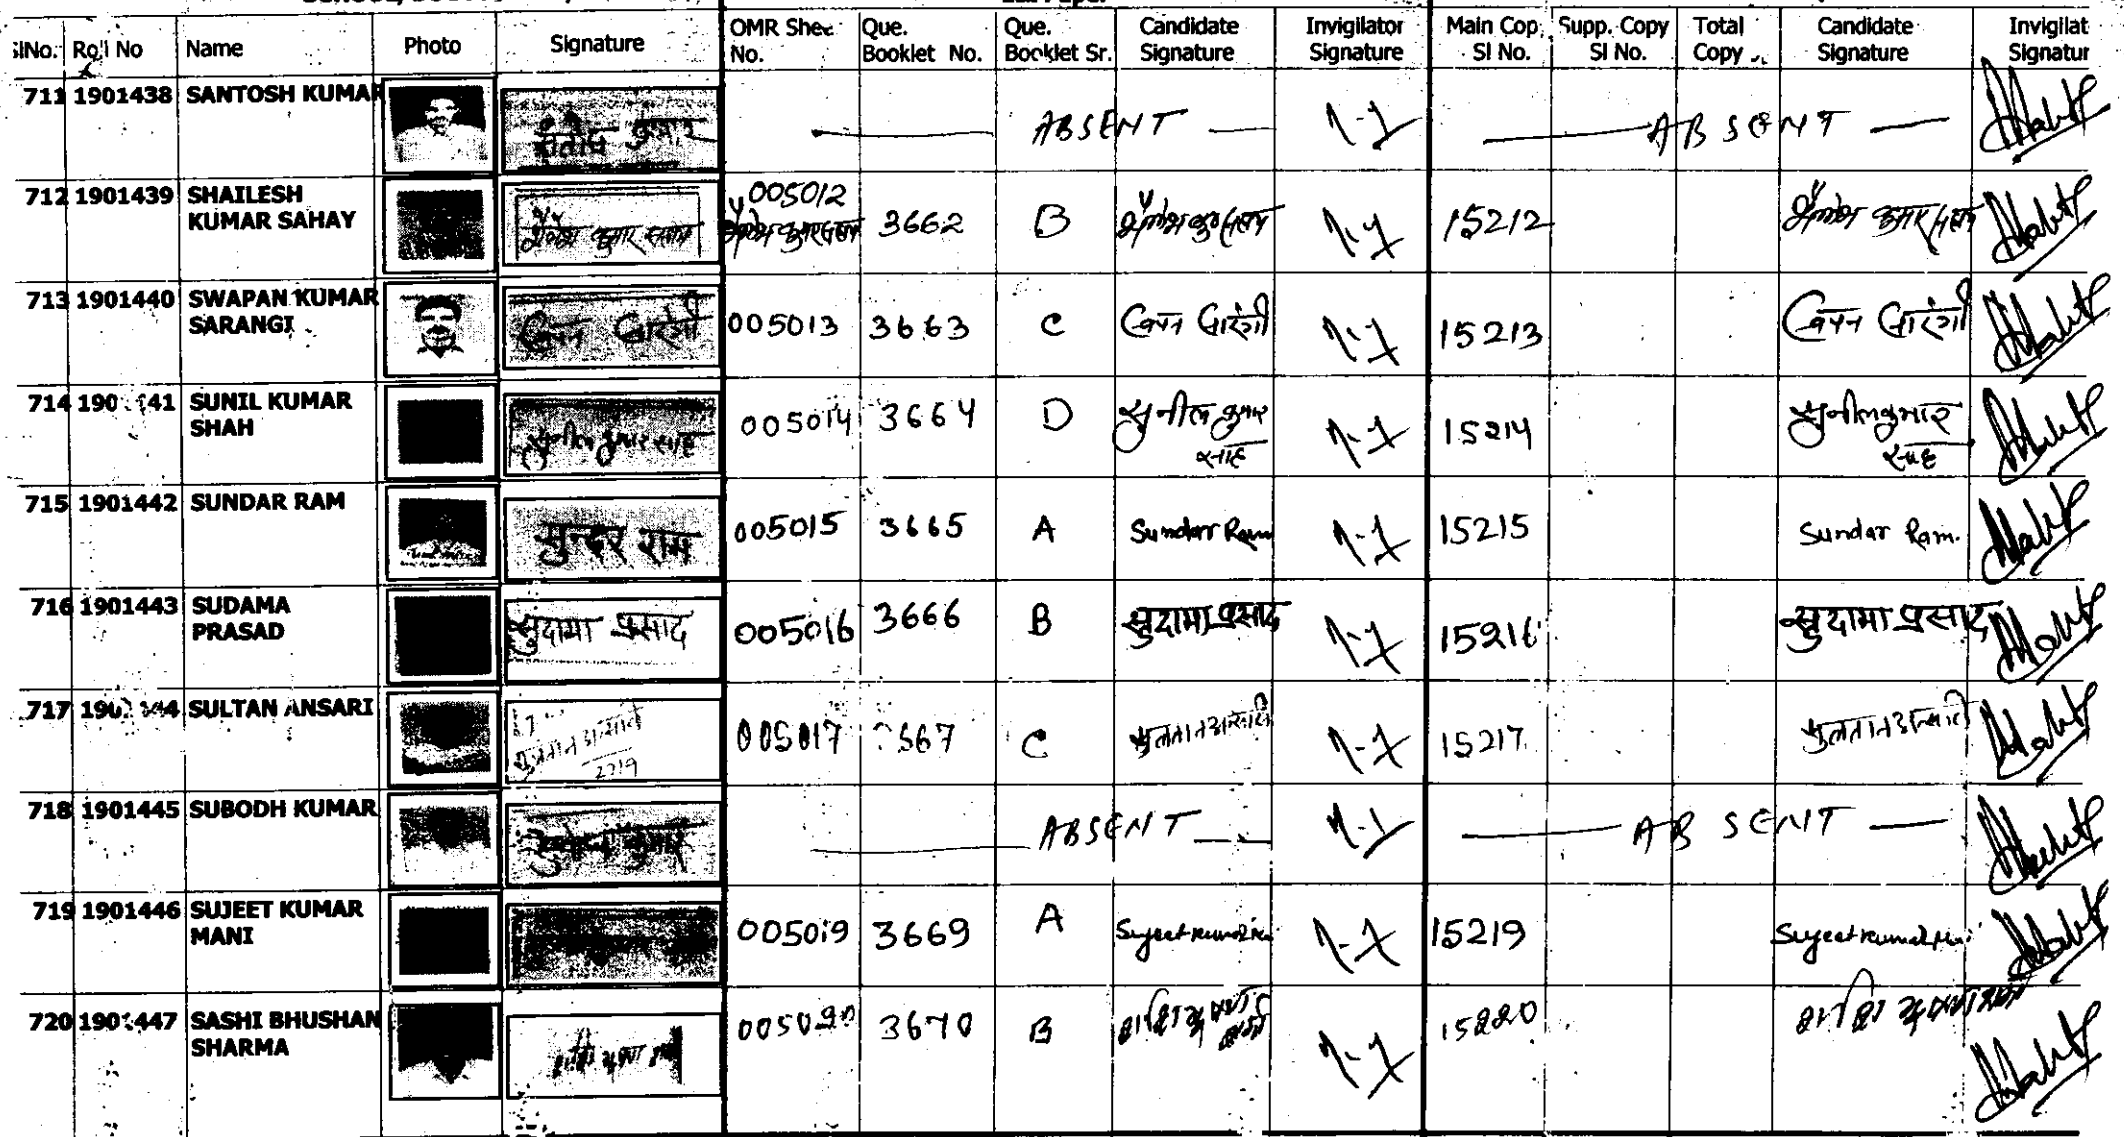 SlNo. Roll No Name Photo Signature OMR Sheet No. Que. Booklet No. Que. Booklet Sr. Candidate Signature Invigilator Signature Main Cop. Sl No. Supp. Copy Sl No. Total Copy Candidate Signature Invigilat Signatur
711 1901438 SANTOSH KUMAR संतोष कुमार ABSENT ABSENT
712 1901439 SHAILESH KUMAR SAHAY शैलेश कुमार सहाय 005012 शैलेश कुमार सहाय 3662 B 15212 शैलेश कुमार सहाय
713 1901440 SWAPAN KUMAR SARANGI स्वपन सारंगी 005013 3663 C स्वपन सारंगी 15213 स्वपन सारंगी
714 190 41 SUNIL KUMAR SHAH सुनील कुमार साह 005014 3664 D सुनील कुमार साह 15214 सुनील कुमार साह
715 1901442 SUNDAR RAM सुन्दर राम 005015 3665 A Sundar Ram 15215 Sundar Ram.
716 1901443 SUDAMA PRASAD सुदामा प्रसाद 005016 3666 B सुदामा प्रसाद 15216 सुदामा प्रसाद
717 SULTAN ANSARI सुलतान अन्सारी 005017 667 C सुलतान अन्सारी 15217 सुलतान अन्सारी
718 1901445 SUBODH KUMAR सुबोध कुमार ABSENT ABSENT
719 1901446 SUJEET KUMAR MANI 005019 3669 A Sujeet Kumar 15219 Sujeet Kumar Mani
720 190 447 SASHI BHUSHAN SHARMA 005020 3670 B शशि भूषण शर्मा 15220 शशि भूषण शर्मा